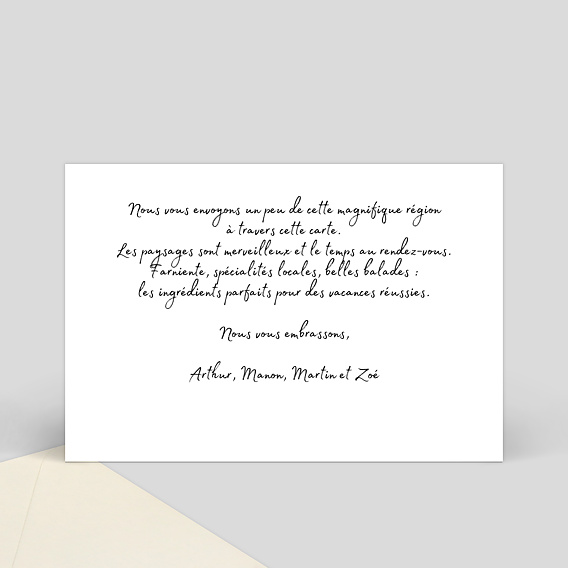 Nous vous envoyons un peu de cette magnifique région
à travers cette carte.
Les paysages sont merveilleux et le temps au rendez-vous.
Farniente, spécialités locales, belles balades :
les ingrédients parfaits pour des vacances réussies.
Nous vous embrassons,
Arthur, Manon, Martin et Zoé